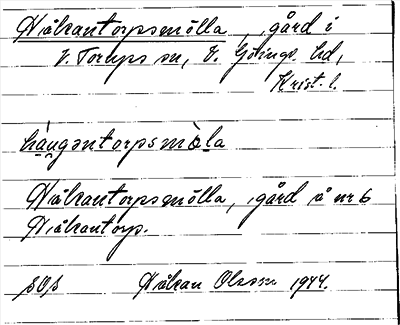 Håkantorpsmölla, gård i
V. Torups sn, V. Göinge hd,
Krist. l.
håŋgəntorpsmòla
Håkantorpsmölla, gård å nr 6
Håkantorp.
SOS Håkan Olsson 1944.